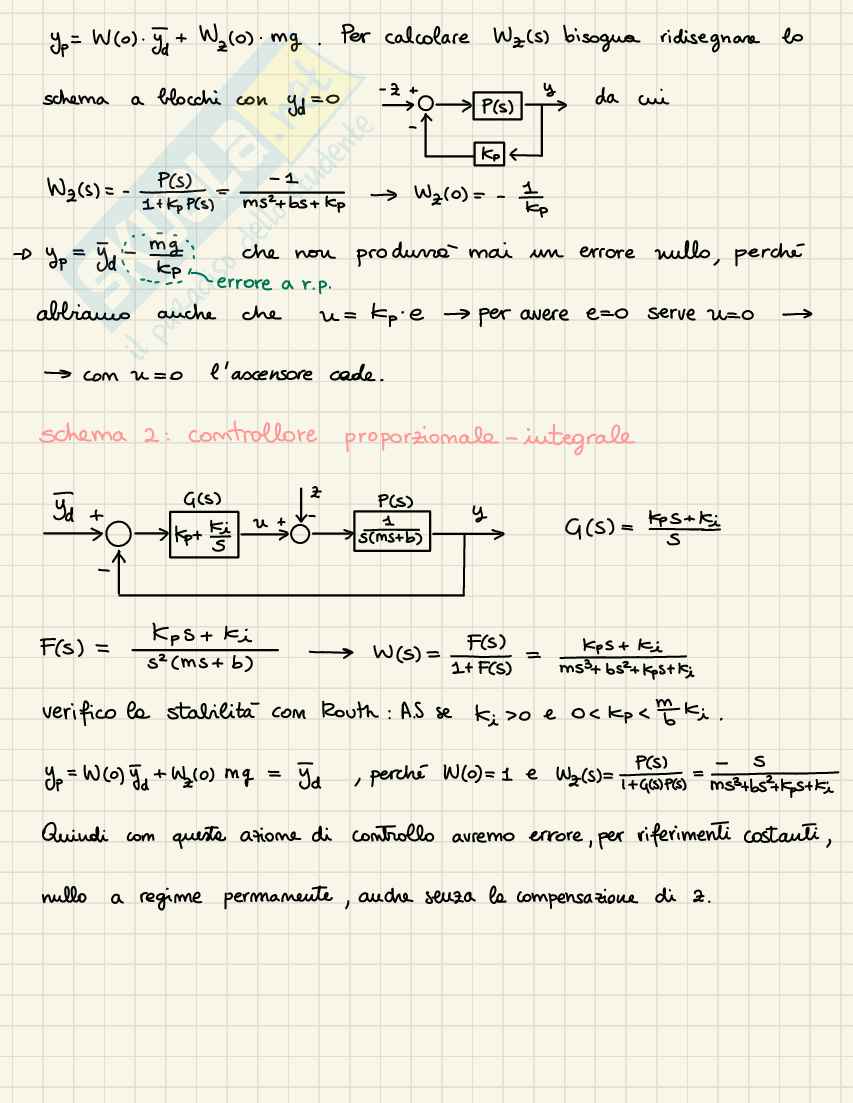 yp = W(0)·ȳd + Wz(0)·mg. Per calcolare Wz(s) bisogna ridisegnare lo
schema a blocchi con yd=0 -z + - P(s) y Kp da cui
Wz(s) = - P(s)/(1+Kp P(s)) = -1/(ms²+bs+Kp) → Wz(0) = - 1/Kp
→ yp = ȳd - mg/Kp che non produrrà mai un errore nullo, perché
errore a r.p.
abbiamo anche che u = Kp·e → per avere e=0 serve u=0 →
→ con u=0 l'ascensore cade.
schema 2: controllore proporzionale-integrale
ȳd + - G(s) Kp + Ki/s u + z - P(s) 1/(s(ms+b)) y G(s) = (Kps+Ki)/s
F(s) = (Kps + Ki)/(s²(ms+b)) → W(s) = F(s)/(1+F(s)) = (Kps + Ki)/(ms³+bs²+Kps+Ki)
verifico la stabilità con Routh: A.S se Ki>0 e 0<Kp<m/b Ki.
yp = W(0)ȳd + Wz(0) mg = ȳd, perché W(0)=1 e Wz(s)= P(s)/(1+G(s)P(s)) = - s/(ms³+bs²+Kps+Ki)
Quindi con questa azione di controllo avremo errore, per riferimenti costanti,
nullo a regime permanente, anche senza la compensazione di z.
SKUOLA.net
il paradiso dello studente